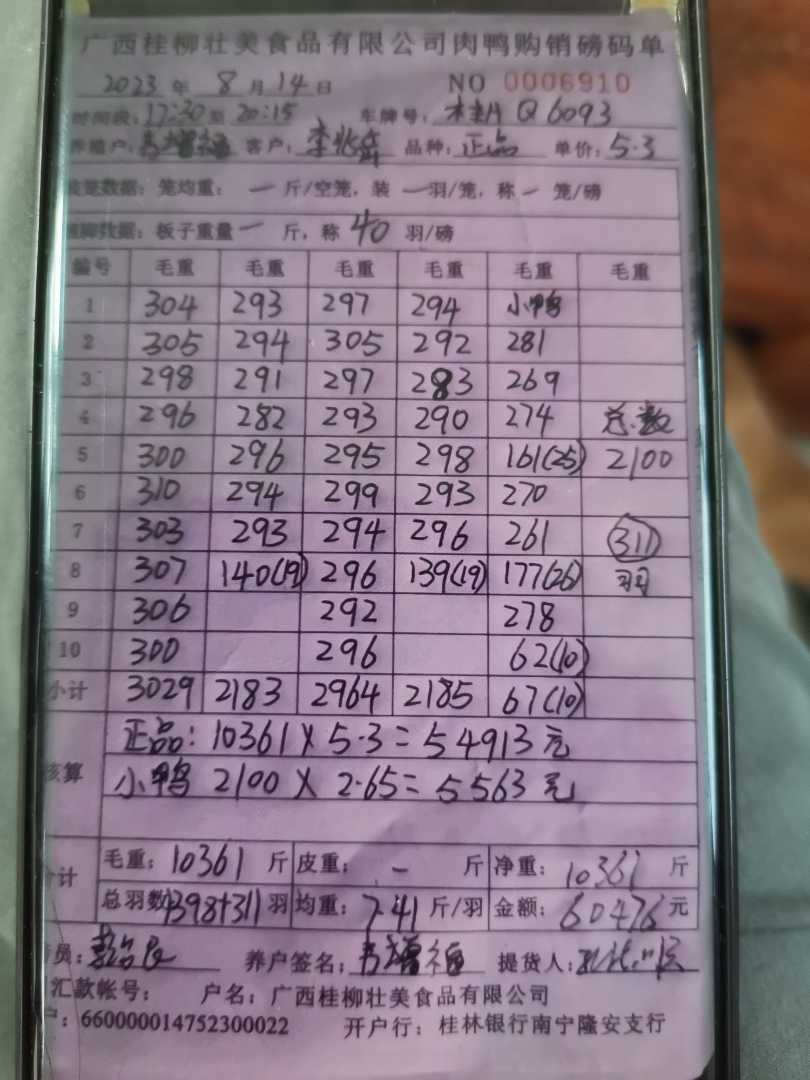 广西桂柳壮美食品有限公司肉鸭购销磅码单
2023 年 8 月 14 日 NO 0006910
时间段: 17:30 至 20:15 车牌号: 桂A Q6093
养殖户: 客户: 李兆 品种: 正品 单价: 5.3
装笼数据: 笼均重: 一 斤/空笼, 装 一 羽/笼, 称 一 笼/磅
脚数据: 板子重量 一 斤, 称 40 羽/磅
编号 毛重 毛重 毛重 毛重 毛重 毛重
1 304 293 297 294 小鸭
2 305 294 305 292 281
3 298 291 297 283 269
4 296 282 293 290 274 总数
5 300 296 295 298 161(25) 2100
6 310 294 299 293 270
7 303 293 294 296 261 311
8 307 140(19) 296 139(19) 177(26) 羽
9 306 292 278
10 300 296 62(10)
小计 3029 2183 2964 2185 67(10)
核算 正品: 10361 × 5.3 = 54913 元
小鸭 2100 × 2.65 = 5563 元
合计 毛重: 10361 斤 皮重: 一 斤 净重: 10361 斤
总羽数 1398+311 羽 均重: 7.41 斤/羽 金额: 60476 元
员: 养户签名: 提货人:
汇款帐号: 户名: 广西桂柳壮美食品有限公司
户: 660000014752300022 开户行: 桂林银行南宁隆安支行